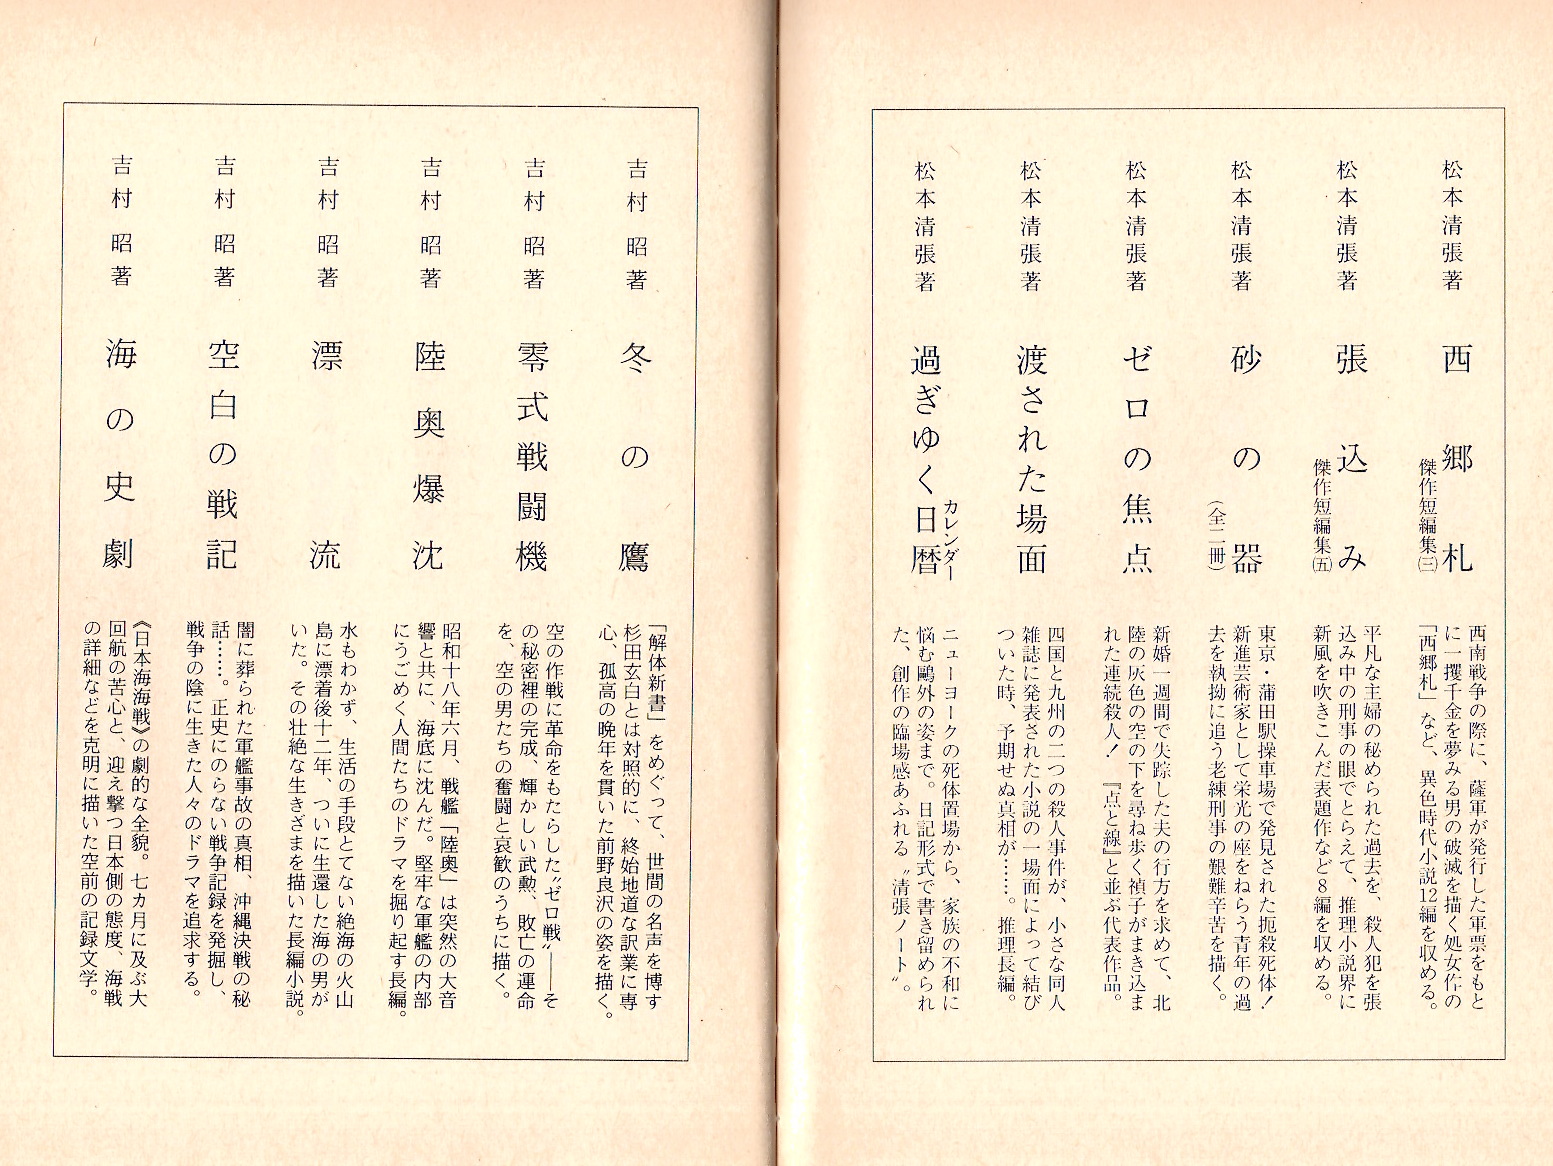 松本清張著
西郷札
傑作短編集㈢
西南戦争の際に、薩軍が発行した軍票をもと
に一攫千金を夢みる男の破滅を描く処女作の
「西郷札」など、異色時代小説12編を収める。
松本清張著
張込み
傑作短編集㈤
平凡な主婦の秘められた過去を、殺人犯を張
込み中の刑事の眼でとらえて、推理小説界に
新風を吹きこんだ表題作など８編を収める。
松本清張著
砂の器
（全二冊）
東京・蒲田駅操車場で発見された扼殺死体！
新進芸術家として栄光の座をねらう青年の過
去を執拗に追う老練刑事の艱難辛苦を描く。
松本清張著
ゼロの焦点
新婚一週間で失踪した夫の行方を求めて、北
陸の灰色の空の下を尋ね歩く禎子がまき込ま
れた連続殺人！　『点と線』と並ぶ代表作品。
松本清張著
渡された場面
四国と九州の二つの殺人事件が、小さな同人
雑誌に発表された小説の一場面によって結び
ついた時、予期せぬ真相が……。推理長編。
松本清張著
過ぎゆく日暦
カレンダー
ニューヨークの死体置場から、家族の不和に
悩む鷗外の姿まで。日記形式で書き留められ
た、創作の臨場感あふれる〝清張ノート〟。
吉村昭著
冬の鷹
「解体新書」をめぐって、世間の名声を博す
杉田玄白とは対照的に、終始地道な訳業に専
心、孤高の晩年を貫いた前野良沢の姿を描く。
吉村昭著
零式戦闘機
空の作戦に革命をもたらした〝ゼロ戦〟――そ
の秘密裡の完成、輝かしい武勲、敗亡の運命
を、空の男たちの奮闘と哀歓のうちに描く。
吉村昭著
陸奥爆沈
昭和十八年六月、戦艦「陸奥」は突然の大音
響と共に、海底に沈んだ。堅牢な軍艦の内部
にうごめく人間たちのドラマを掘り起す長編。
吉村昭著
漂流
水もわかず、生活の手段とてない絶海の火山
島に漂着後十二年、ついに生還した海の男が
いた。その壮絶な生きざまを描いた長編小説。
吉村昭著
空白の戦記
闇に葬られた軍艦事故の真相、沖縄決戦の秘
話……。正史にのらない戦争記録を発掘し、
戦争の陰に生きた人々のドラマを追求する。
吉村昭著
海の史劇
《日本海海戦》の劇的な全貌。七カ月に及ぶ大
回航の苦心と、迎え撃つ日本側の態度、海戦
の詳細などを克明に描いた空前の記録文学。